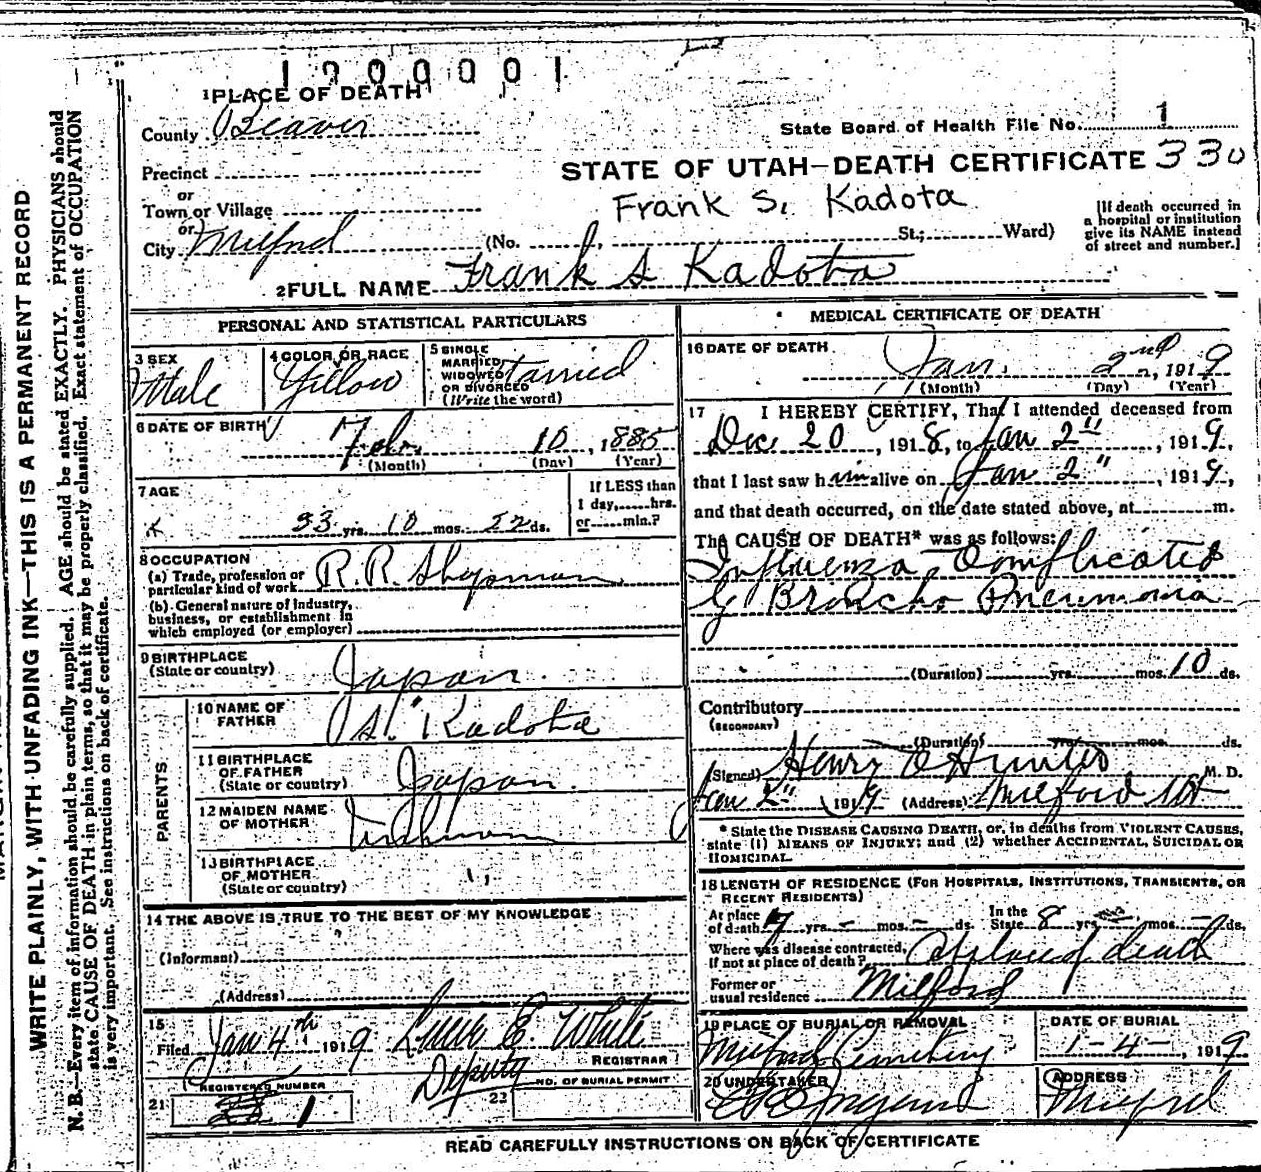 1900001
1 PLACE OF DEATH
County Beaver
State Board of Health File No. 1
Precinct
STATE OF UTAH—DEATH CERTIFICATE 330
or
Town or Village
Frank S. Kadota
or
City Milford (No. St.; Ward)
[If death occurred in a hospital or institution give its NAME instead of street and number.]
2 FULL NAME Frank S Kadota
PERSONAL AND STATISTICAL PARTICULARS
3 SEX Male
4 COLOR OR RACE Yellow
5 SINGLE MARRIED WIDOWED OR DIVORCED (Write the word) Married
6 DATE OF BIRTH Feb. 10, 1885
(Month) (Day) (Year)
7 AGE 33 yrs. 10 mos. 22 ds.
If LESS than 1 day, hrs. or min.?
8 OCCUPATION
(a) Trade, profession or particular kind of work R.R. Shopman
(b) General nature of Industry, business, or establishment in which employed (or employer)
9 BIRTHPLACE (State or country) Japan
PARENTS
10 NAME OF FATHER S. Kadota
11 BIRTHPLACE OF FATHER (State or country) Japan
12 MAIDEN NAME OF MOTHER
13 BIRTHPLACE OF MOTHER (State or country) "
14 THE ABOVE IS TRUE TO THE BEST OF MY KNOWLEDGE
(Informant)
(Address)
15 Filed Jan 4th 1919 E. White
Deputy REGISTRAR
REGISTERED NUMBER
21 1
22 NO. OF BURIAL PERMIT
MEDICAL CERTIFICATE OF DEATH
16 DATE OF DEATH Jan. 2nd, 1919
(Month) (Day) (Year)
17 I HEREBY CERTIFY, That I attended deceased from
Dec 20, 1918, to Jan 2", 1919,
that I last saw him alive on Jan 2", 1919,
and that death occurred, on the date stated above, at m.
The CAUSE OF DEATH* was as follows:
Influenza Complicated
by Broncho Pneumonia
(Duration) yrs. mos. 10 ds.
Contributory
(SECONDARY)
(Duration) yrs. mos. ds.
(Signed) Henry Hunter M. D.
Jan 2" 1919 (Address) Milford Ut
* State the DISEASE CAUSING DEATH, or, in deaths from VIOLENT CAUSES, state (1) MEANS OF INJURY; and (2) whether ACCIDENTAL, SUICIDAL OR HOMICIDAL
18 LENGTH OF RESIDENCE (FOR HOSPITALS, INSTITUTIONS, TRANSIENTS, OR RECENT RESIDENTS)
At place of death 7 yrs. - mos. - ds. In the State 8 yrs. mos. - ds.
Where was disease contracted, If not at place of death? At place of death
Former or usual residence Milford
19 PLACE OF BURIAL OR REMOVAL Milford Cemetery
DATE OF BURIAL 1-4-, 1919
20 UNDERTAKER
ADDRESS Milford
READ CAREFULLY INSTRUCTIONS ON BACK OF CERTIFICATE
WRITE PLAINLY, WITH UNFADING INK—THIS IS A PERMANENT RECORD
N. B.—Every item of information should be carefully supplied. AGE should be stated EXACTLY. PHYSICIANS should
state CAUSE OF DEATH in plain terms, so that it may be properly classified. Exact statement of OCCUPATION
is very important. See instructions on back of certificate.